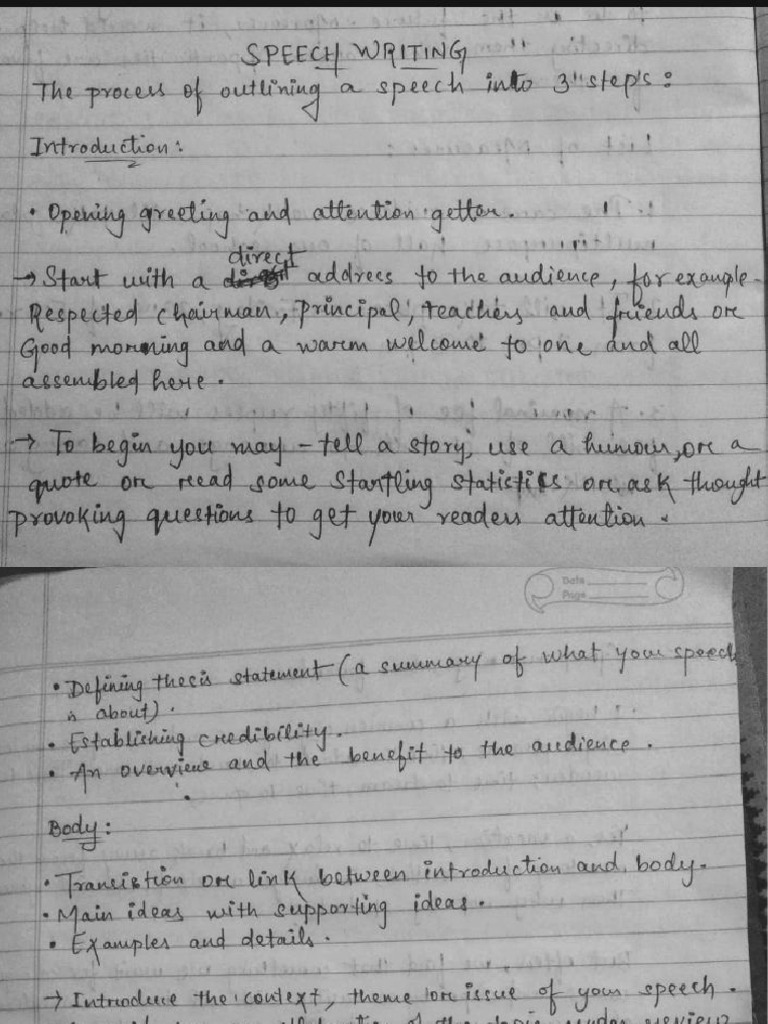 SPEECH WRITING
The process of outlining a speech into 3 steps:
Introduction:
• Opening greeting and attention getter.
direct
→ Start with a address to the audience, for example-
Respected chairman, principal, teachers and friends or
Good morning and a warm welcome to one and all
assembled here.
→ To begin you may – tell a story, use a humour, or a
quote or read some startling statistics or ask thought
provoking questions to get your readers attention.
Date
Page
• Defining thesis statement (a summary of what your speech
is about).
• Establishing credibility.
• An overview and the benefit to the audience.
Body:
• Transistion or link between introduction and body.
• Main ideas with supporting ideas.
• Examples and details.
→ Introduce the context, theme or issue of your speech.
of the topic under review